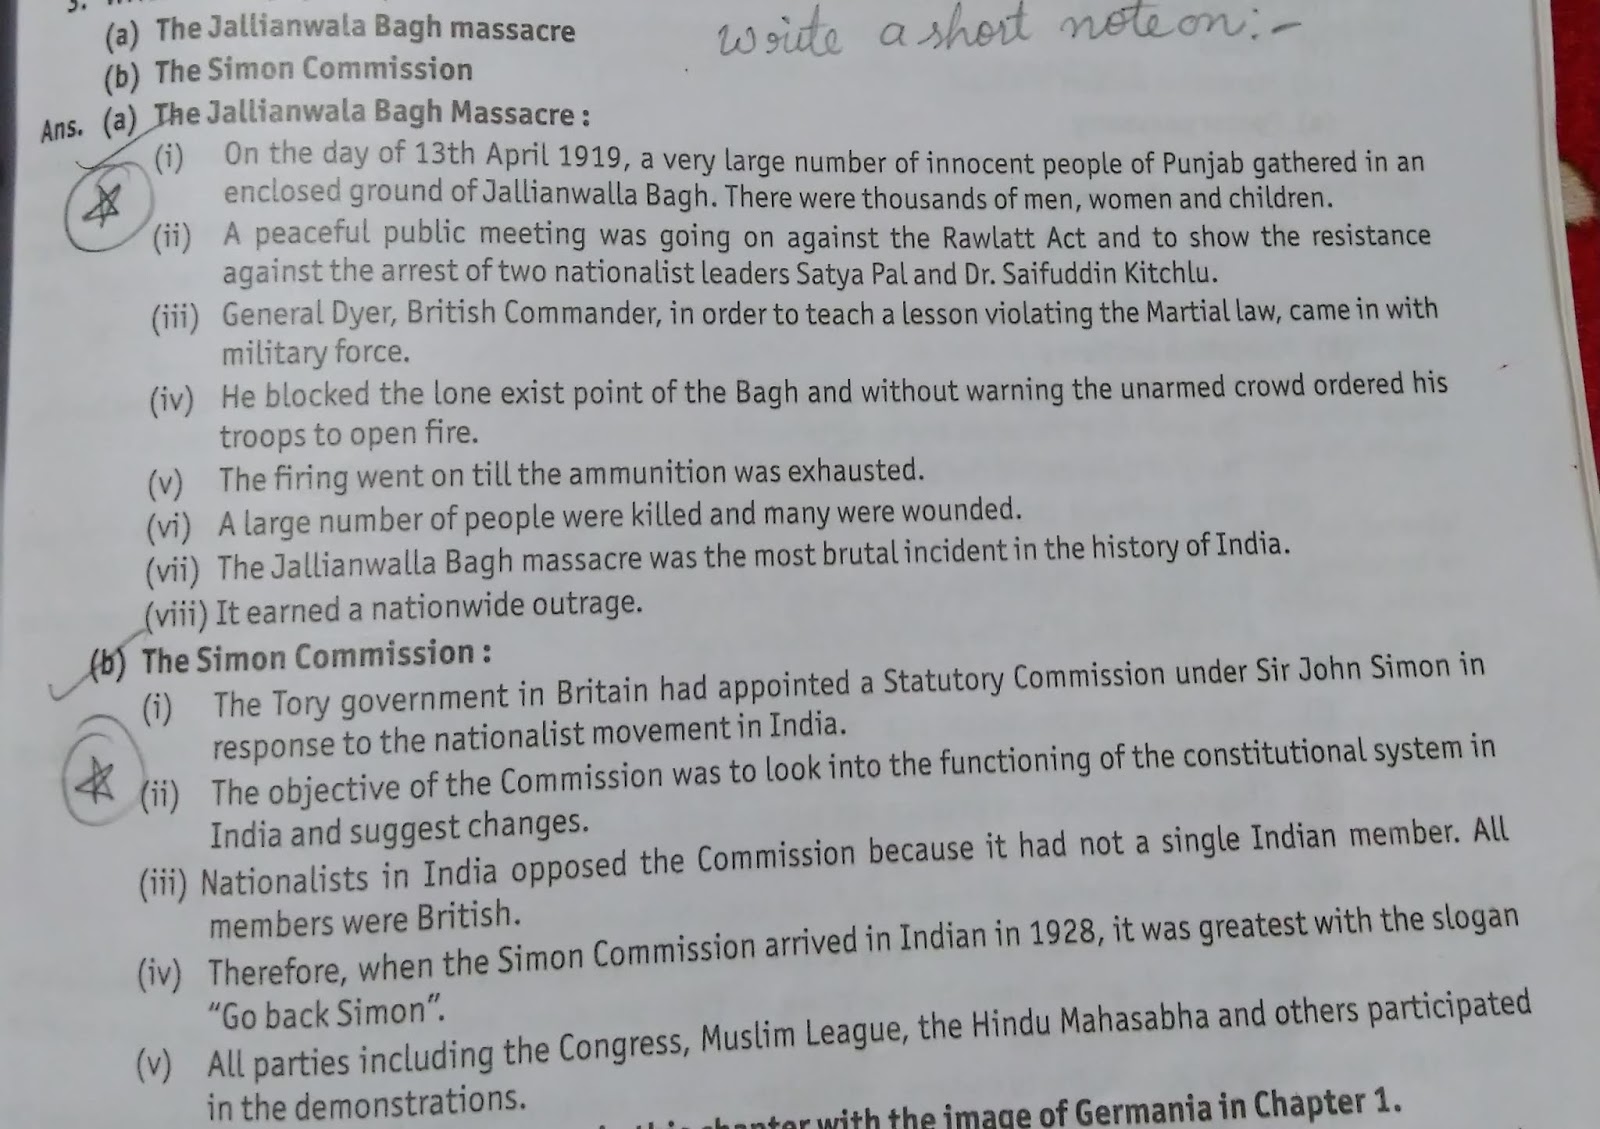 3.
(a) The Jallianwala Bagh massacre
write a short note on:-
(b) The Simon Commission
Ans. (a) The Jallianwala Bagh Massacre :
(i) On the day of 13th April 1919, a very large number of innocent people of Punjab gathered in an
enclosed ground of Jallianwalla Bagh. There were thousands of men, women and children.
(ii) A peaceful public meeting was going on against the Rawlatt Act and to show the resistance
against the arrest of two nationalist leaders Satya Pal and Dr. Saifuddin Kitchlu.
(iii) General Dyer, British Commander, in order to teach a lesson violating the Martial law, came in with
military force.
(iv) He blocked the lone exist point of the Bagh and without warning the unarmed crowd ordered his
troops to open fire.
(v) The firing went on till the ammunition was exhausted.
(vi) A large number of people were killed and many were wounded.
(vii) The Jallianwalla Bagh massacre was the most brutal incident in the history of India.
(viii) It earned a nationwide outrage.
(b) The Simon Commission :
(i) The Tory government in Britain had appointed a Statutory Commission under Sir John Simon in
response to the nationalist movement in India.
(ii) The objective of the Commission was to look into the functioning of the constitutional system in
India and suggest changes.
(iii) Nationalists in India opposed the Commission because it had not a single Indian member. All
members were British.
(iv) Therefore, when the Simon Commission arrived in Indian in 1928, it was greatest with the slogan
“Go back Simon”.
(v) All parties including the Congress, Muslim League, the Hindu Mahasabha and others participated
in the demonstrations.
chapter with the image of Germania in Chapter 1.